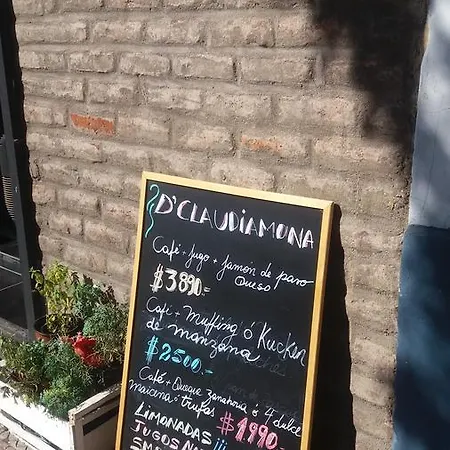 D'CLAUDIAMONA
Café + Jugo + jamón de pavo
Queso
$3890.-
Café + Muffing ó Kuchen
de manzana
$2500.-
Café + Queque zanahoria ó 4 dulce
maicena ó trufas $1990.-
LIMONADAS
JUGOS